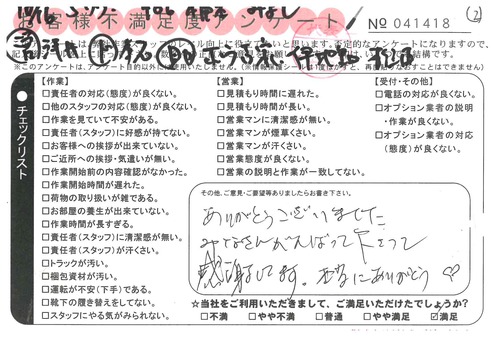 お客様不満足度アンケート
No 041418
②
※このアンケートは、アンケート目的以外では使用いたしません。
チェックリスト
【作業】
□責任者の対応(態度)が良くない。
□他のスタッフの対応(態度)が良くない。
□作業を見ていて不安がある。
□責任者(スタッフ)に好感が持てない。
□お客様への挨拶が出来ていない。
□ご近所への挨拶・気遣いが無い。
□作業開始前の内容確認がなかった。
□作業開始時間が遅れた。
□荷物の取り扱いが雑である。
□お部屋の養生が出来ていない。
□作業時間が長すぎる。
□責任者(スタッフ)に清潔感が無い。
□責任者(スタッフ)が汗くさい。
□トラックが汚い。
□梱包資材が汚い。
□運転が不安(下手)である。
□靴下の履き替えをしてない。
□スタッフにやる気がみられない。
【営業】
□見積もり時間に遅れた。
□見積もり時間が長い。
□営業マンに清潔感が無い。
□営業マンが煙草くさい。
□営業マンが汗くさい。
□営業態度が良くない。
□営業の説明と作業が一致してない。
【受付・その他】
□電話の対応が良くない。
□オプション業者の説明
・作業が良くない。
□オプション業者の対応
(態度)が良くない。
その他、ご意見・ご要望等ありましたらお書き下さい。
ありがとうございました
みなさんがんばって下さって
感謝してます。本当にありがとう♡
☆当社をご利用いただきまして、ご満足いただけたでしょうか?
□不満 □やや不満 □普通 □やや満足 ☑満足